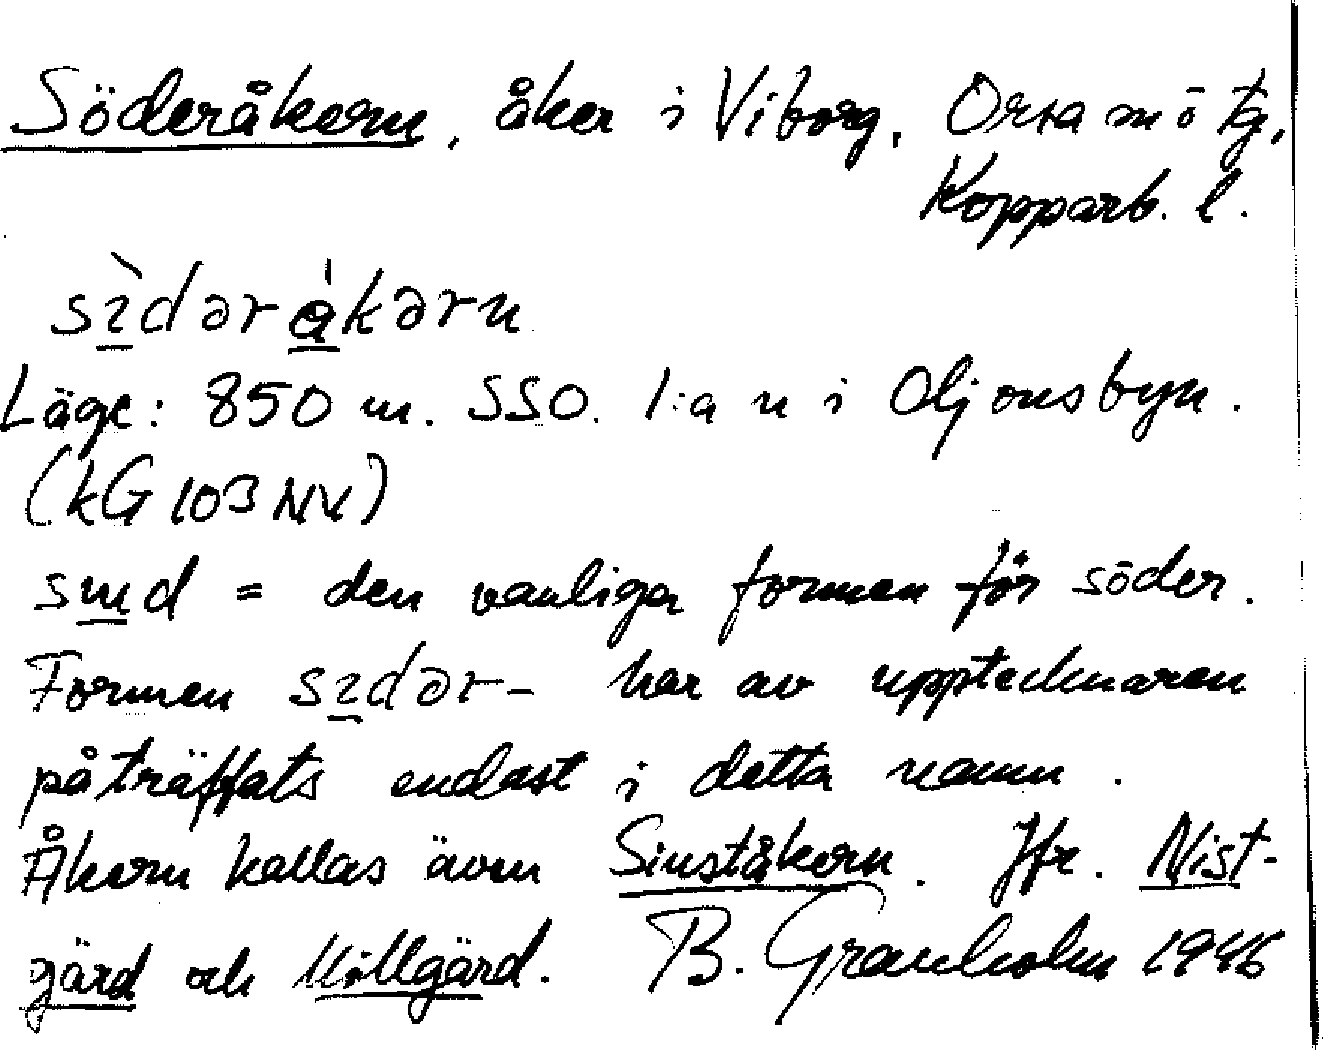 Söderåkern, åker i Viborg, Orsa sn ö tg,
Kopparb. l.
sìdərákərn
Läge: 850 m. SSO. l:a n i Oljonsbyn.
(kG 103 NV)
sud = den vanliga formen för söder.
Formen sıdər- har av upptecknaren
påträffats endast i detta namn.
Åkern kallas även Sinståkern. Jfr. Nist-
gärd och Möllgärd. B. Granholm 1946